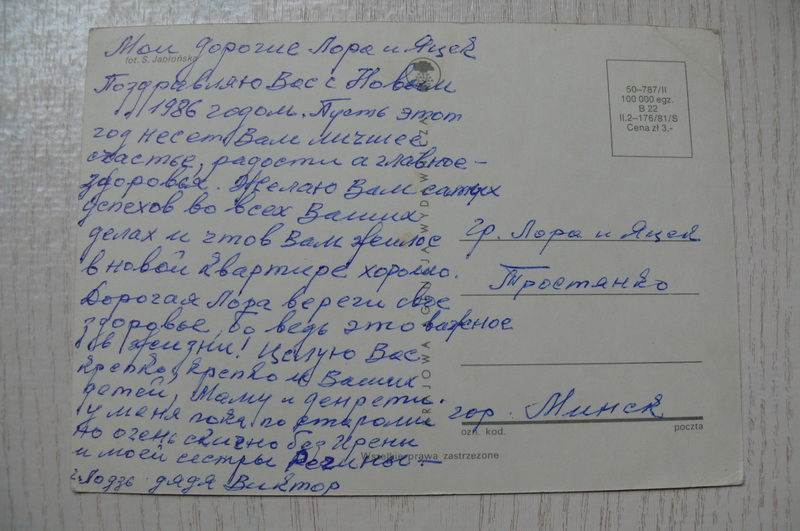 Мои дорогие Лора и Яцек
fot. S. Jabłońska
Поздравляю Вас с Новым
1986 годом. Пусть этот
год несет Вам личшее
счастье, радости а главное –
здоровья. Желаю Вам самых
успехов во всех Ваших
делах и чтов Вам жилос
в новой квартире хорошо.
Дорогая Лора вереги свое
здоровье, бо ведь это важное
в жизни! Целую Вас
крепко, крепко и Ваших
детей, Маму и
у меня пока по старому
Но очень скучно без Ирены
и моей сестры –
г. Лодзь дядя Виктор
50–787/II
100 000 egz.
B 22
II.2–176/81/S
Cena zł 3,-
гр. Лора и Яцек
Тростянко
гор. Минск
ozn. kod.
poczta
Wszelkie prawa zastrzeżone